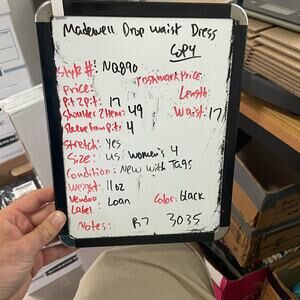 Madewell Drop Waist Dress
COPY
Style #: NQ890
Poshmark Price:
Price:
Length:
Pit 2 Pit: 17
Waist: 17
Shoulder 2 Hem: 49
Sleeve from Pit: 4
Stretch: Yes
Size: US women's 4
Condition: New with Tags
Weight: 11oz
Color: black
Vendoo Label Loan
Notes: B7 3035